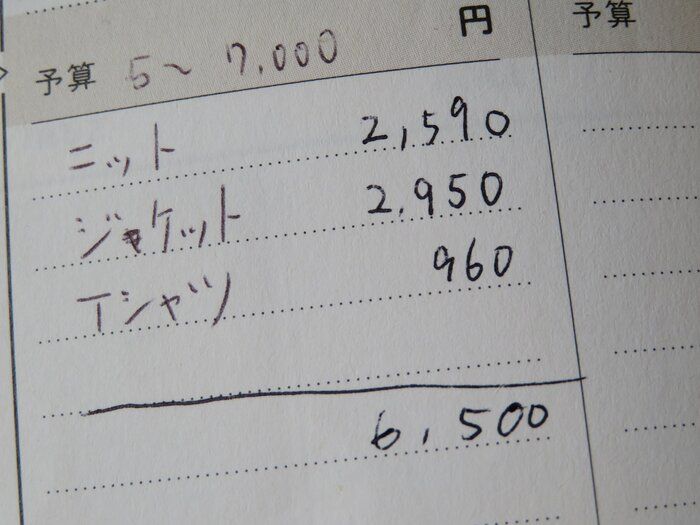 円
予算 5〜7,000
予算
ニット 2,590
ジャケット 2,950
Tシャツ 960
6,500